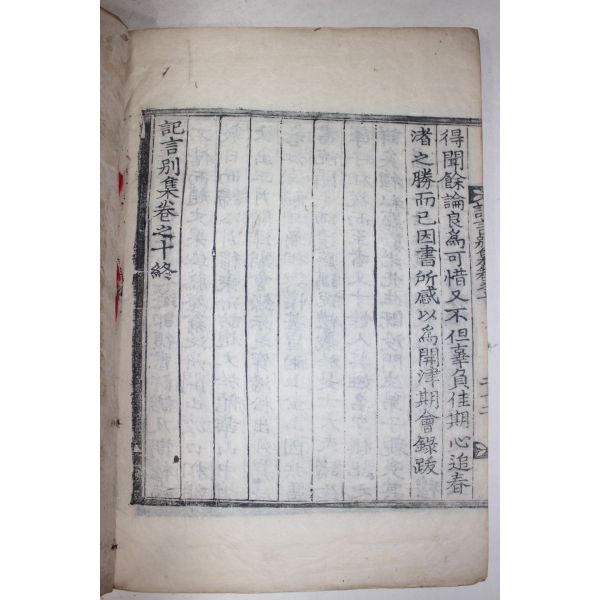 記言別集卷之十
得聞餘論良爲可惜又不但辜負佳期心追春
渚之勝而已因書所感以爲開津期會錄跋
記言別集卷之十終